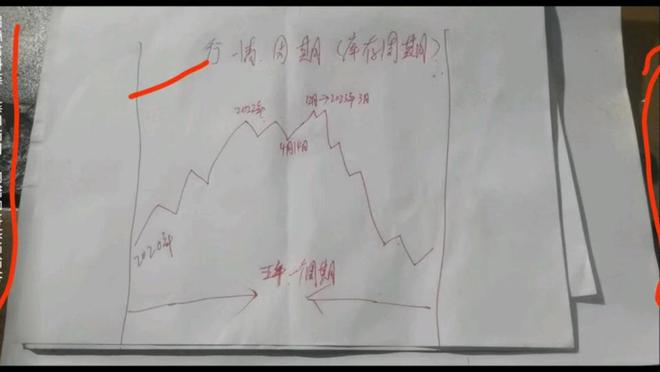 行情周期(库存周期)
12月→2023年3月
2022年
4月14日
2020年
五年一个周期